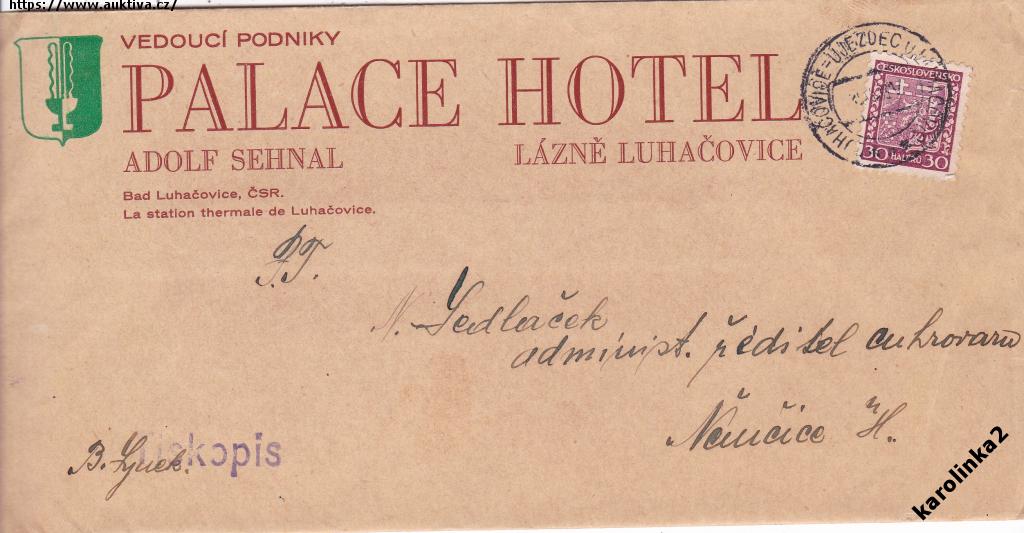 https://www.auktiva.cz/
VEDOUCÍ PODNIKY
PALACE HOTEL
ADOLF SEHNAL LÁZNĚ LUHAČOVICE
Bad Luhačovice, ČSR.
La station thermale de Luhačovice.
LUHAČOVICE=ÚJEZDEC U
ČESKOSLOVENSKO
30 HALÉŘŮ 30
P.T.
N. Sedlaček
administ. ředitel cukrovaru
Němčice H.
B.
Tiskopis
karolinka2